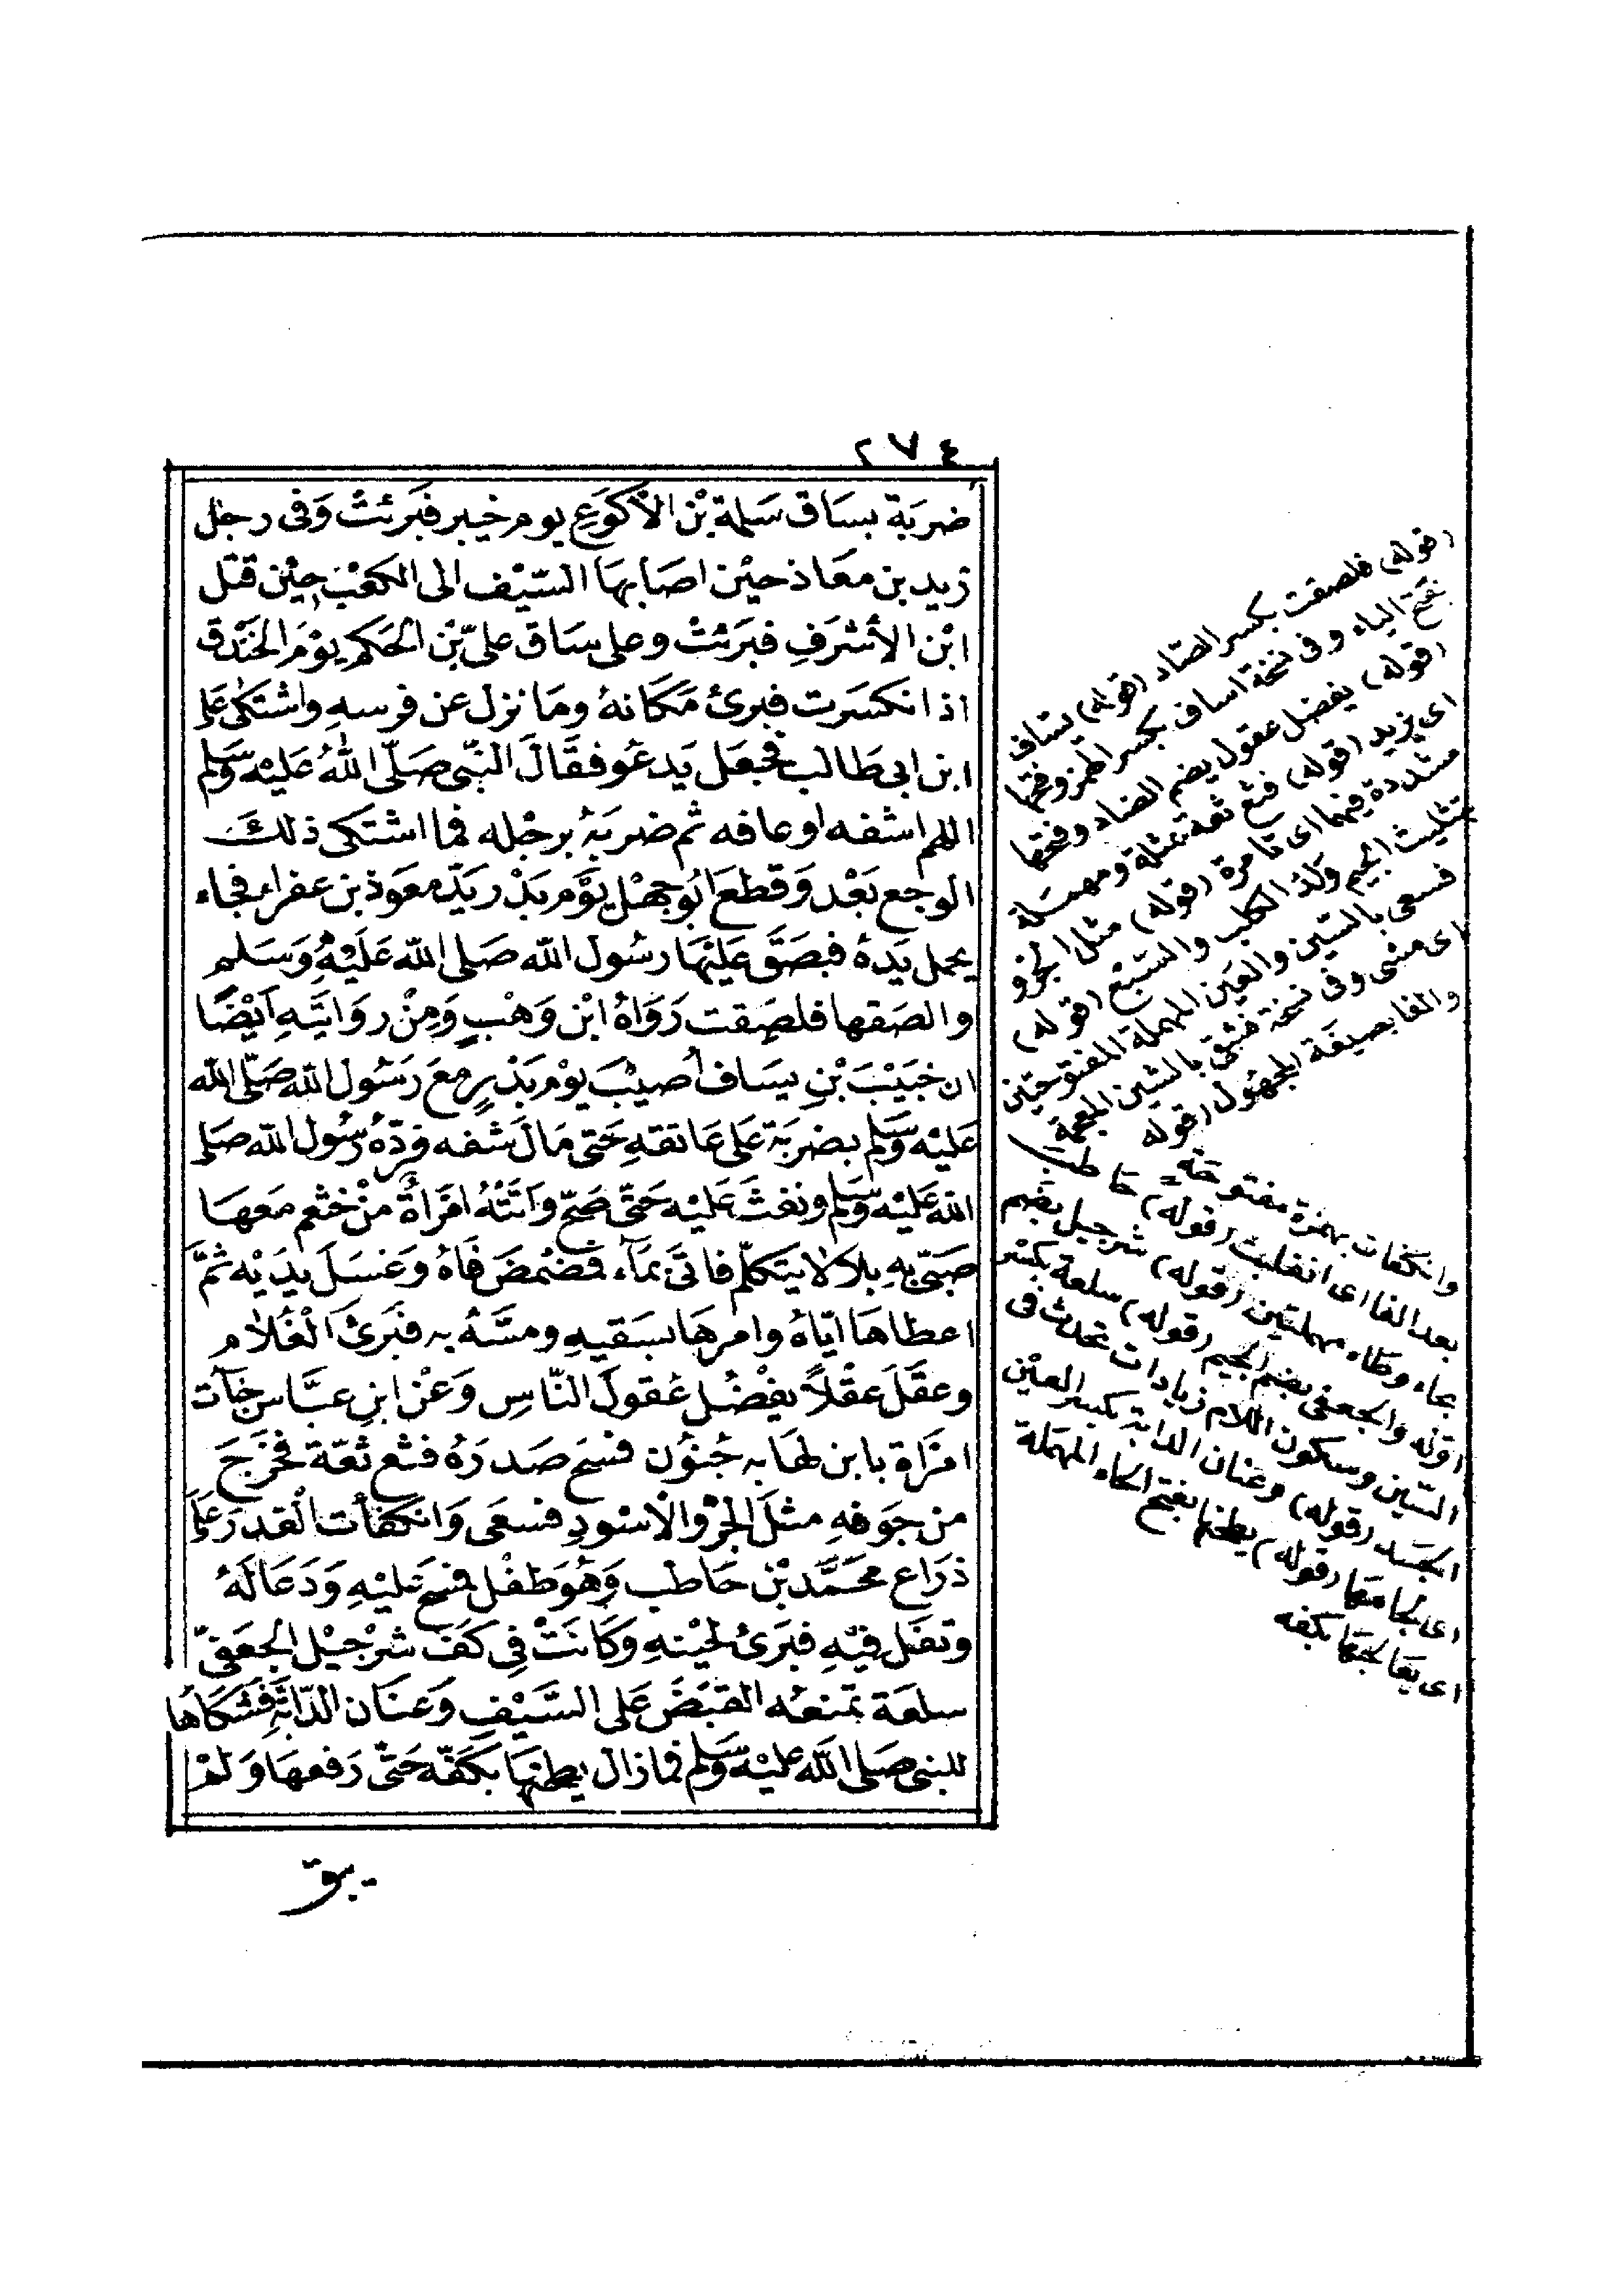 ٢٧٤
ضربة بساق سلمة بْن الأكْوَعِ يوم خيبر فبَرئتْ وَفى رجل
زيد بن معَاذ حيْن اصَابهَا السّيْف الى الكعْب حِيْن قتل
ابْن الأشرَفِ فبَرَئتْ وعلى سَاق علىّ بْن الحَكم يوْمَ الخنْدق
اذا نكسَرت فبرئ مَكَانهُ ومَا نزل عن فرسهِ واشتكىٰ علي
ابن ابى طَالب فجعَل يَدعُو فقَالَ النّبى صَلّى اللهُ عَليْه وَسَّلم
اللهم اشفه او عافه ثم ضربَهُ برجْله فما اشتكى ذلك
الوجع بَعْد وَقطعَ ابُو جهْل يوْم بَدْر يَدّ معوّذ بن عفراء فجاء
يحمل يَدهُ فبصَقَ عَليْهَا رسُول الله صَلى الله عَليْهِ وَسَلم
والصَقها فلصِقت رَوَاهُ ابْن وَهْبٍ وَمِنْ روَايَتهِ ايْضًا
ان خبَيْبَ بْنِ يسَاف اُصيْبَ يوْم بَدْرٍ معَ رَسُول الله صَلّى الله
عَليْه وَسَلم بضربَة عَلى عَاتقهِ حَتى مَالَ شفه فردّهُ رسُول الله صَلى
الله عَليْه وَسَلم ونفثَ عَليْه حَتّى صَحّ وَاتَتْهُ امْرَاةٌ منْ خثْعم معَهَا
صَبىّ بهِ بلاء لا يتَكلّم فاتىَ بمَآء فمضْمضَ فَاهُ وَغسَلَ يدَيْه ثمَّ
اعطاهَا ايّاهُ وامرهَا بسَقيهِ ومسّهُ به فبَرئَ الْغُلاَم
وعقَلَ عقْلاً يفْضُل عُقولَ النّاسِ وَعَنْ ابنِ عبَّاس جَآءت
امْرَاة بابن لهَا به جُنوُن فمسَح صَدرَهُ فثع ثعّة فخَرَجَ
من جَوفهِ مثلَ الجرْو الاَسْودِ فسعَى وَانكَفأت القدر عَلى
ذرَاع محَمَّد بْن حَاطب وَهُوَ طفْل فمسح عَليْهِ وَدَعَا لَهُ
وتفَل فيْهِ فبَرئ لحيْنهِ وَكَانَتْ فِى كَفّ شرْجيْل الجعَفىّ
سلعَة تمنعُه القبَضَ عَلى السَّيْفِ وَعنَان الدّابّةِ فشكَاهَا
للنبى صَلى الله عَليْه وَسَلم فما زال يطحنهَا بكَفّه حَتّى رَفعهَا وَلمْ
يبق
(قوله) فلصقت بكسر الصّاد (قوله) يسَاف
بفتح الياء وفى نسخة اساف بكسر الهمز وفتحها
(قوله) يفضل عقول بضم الضاد وفتحها
اى يزيد (قوله) فثع ثعه بمثلة ومهملة
مشددة فيهما اى قاء مرة (قوله) مثل الجرو
بتثليث الجيم ولد الكلب والسّبع (قوله)
فسعى بالسّين والعَين المهملة المفتوحتين
اى مشى وفى نسخة فشق بالشين المعجمة
والقا بصيغة المجهُول (قوله
وانكفات بهمزة مفتوحَة
بعد الفا اى انقلبت (قوله) حَاطب
بحاء وطَاء مهملتين (قوله) شرجيل بضَم
اوّله والجعفى بضم الجيم (قوله) سلعة بكسْر
السّين وسكون اللام زيادات تحدث فى
الجسَد (قوله) وعنان الدابة بكسر العيْن
اى لجامهَا (قوله) يطحنها بفتح الحاء المهمَلة
اى يعَالجهَا بكفه